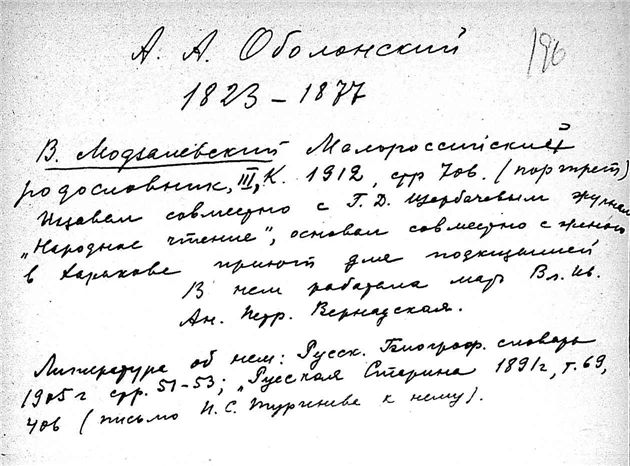 А. А. Оболонский
196
1823 – 1877
В. Модзалевский Малороссийский
родословник, III, К. 1912, стр 706. (портрет)
Издавал совместно с Г. Д. Щербачевым журнал
„Народное чтение", основал совместно с женой
в Харькове приют для подкидышей
В нем работала мать Вл. Ив.
Ан. Петр. Вернадская.
Литература об нем: Русск. Биограф. словарь
1905 г стр. 51-53; „Русская Старина 1891 г, т. 69,
406 (письмо И. С. Тургенева к нему).